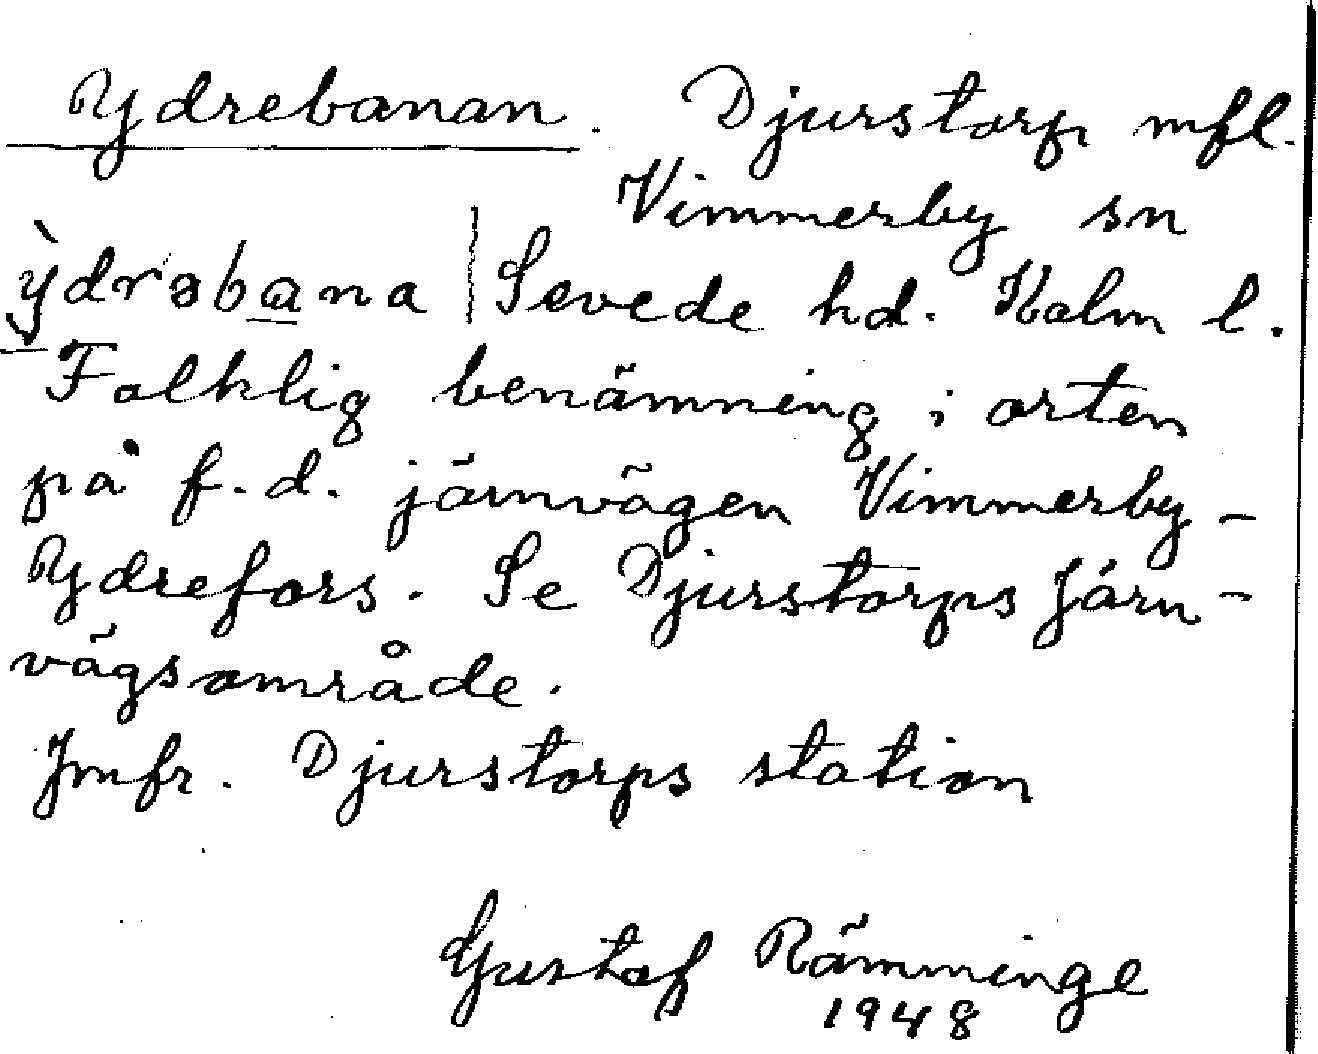 Ydrebanan. Djurstorp mfl.
Vimmerby sn
ỳdrəbana | Sevede hd. Kalm l.
Folklig benämning i orten
på f.d. järnvägen Vimmerby -
Ydrefors. Se Djurstorps Järn-
vägsområde.
Jmfr. Djurstorps station
Gustaf Rämminge
1948